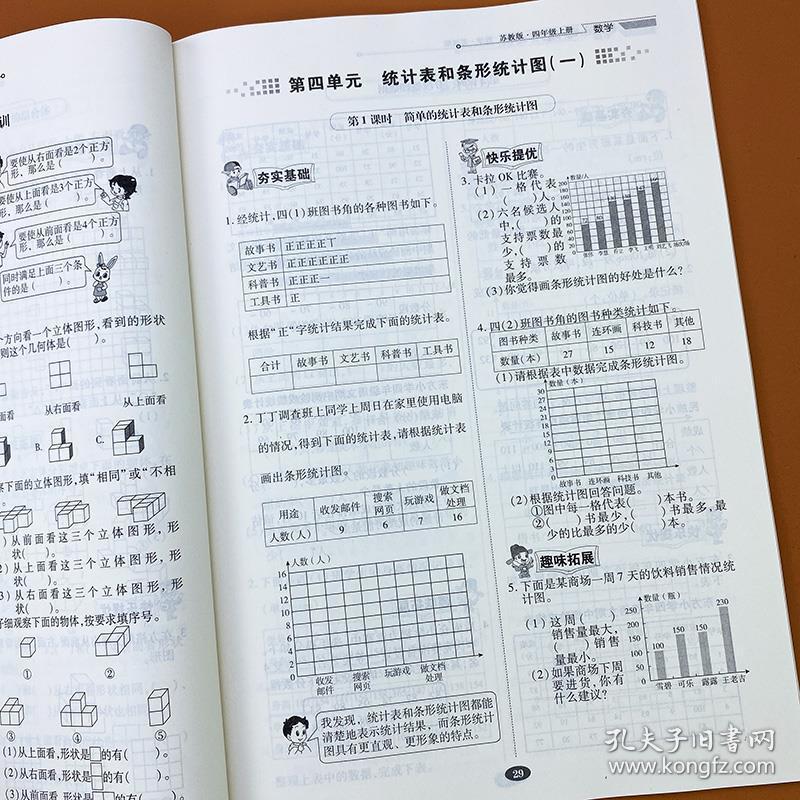 训
要使从右面看是2个正方
形，那么是（　　）。
要使从上面看是3个正方
形，那么是（　　）。
要使从前面看是4个正方
形，那么是（　　）。
同时满足上面三个条
件的是（　　）。
个方向看一个立体图形，看到的形状
则这个几何体是（　　）。
从右面看
从上面看
B.
C.
察下面的立体图形，填“相同”或“不相
）从前面看这三个立体图形，形
状（　　）。
）从上面看这三个立体图形，形
状（　　）。
）从右面看这三个立体图形，形
状（　　）。
仔细观察下面的物体，按要求填序号。
① ②
③ ④ ⑤
(1)从上面看，形状是 的有（　　）。
(2)从右面看，形状是 的有（　　）。
(3)从前面看，形状是 的有（　　）。
苏教版·四年级上册 数学
第四单元　统计表和条形统计图(一)
第1课时　简单的统计表和条形统计图
夯实基础
1.经统计，四(1)班图书角的各种图书如下。
故事书 正正正正丅
文艺书 正正正正正正
科普书 正正正一
工具书 正
根据“正”字统计结果完成下面的统计表。
合计 故事书 文艺书 科普书 工具书
2.丁丁调查班上同学上周日在家里使用电脑
的情况，得到下面的统计表，请根据统计表
画出条形统计图。
用途 收发邮件 搜索网页 玩游戏 做文档处理
人数(人) 9 6 7 16
人数(人)
16
14
12
10
8
6
4
2
0
收发邮件 搜索网页 玩游戏 做文档处理
我发现，统计表和条形统计图都能
清楚地表示统计结果，而条形统计
图具有更直观、更形象的特点。
快乐提优
3.卡拉OK比赛。
(1)一格代表
（　　）人。
(2)六名候选人
中，（　　）的
支持票数最
少，（　　）的
支持票数
最多。
数量/人
(3)你觉得画条形统计图的好处是什么？
4.四(2)班图书角的图书种类统计如下。
图书种类 故事书 连环画 科技书 其他
数量(本) 27 15 12 18
(1)请根据表中数据完成条形统计图。
数量(本)
30
27
24
21
18
15
12
9
6
3
0
故事书 连环画 科技书 其他
(2)根据统计图回答问题。
①图中每一格代表（　　）本书。
②（　　）书最少，（　　）书最多，最
少的比最多的少（　　）本。
趣味拓展
5.下面是某商场一周7天的饮料销售情况统
计图。
(1)这周（　　）
销售量最大，
（　　）销售
量最小。
(2)如果商场下周
要进货，你有
什么建议？
数量(瓶)
250
200
150
100
50
0
100 150 150 230
雪碧 可乐 露露 王老吉
29
孔夫子旧书网
www.kongfz.com